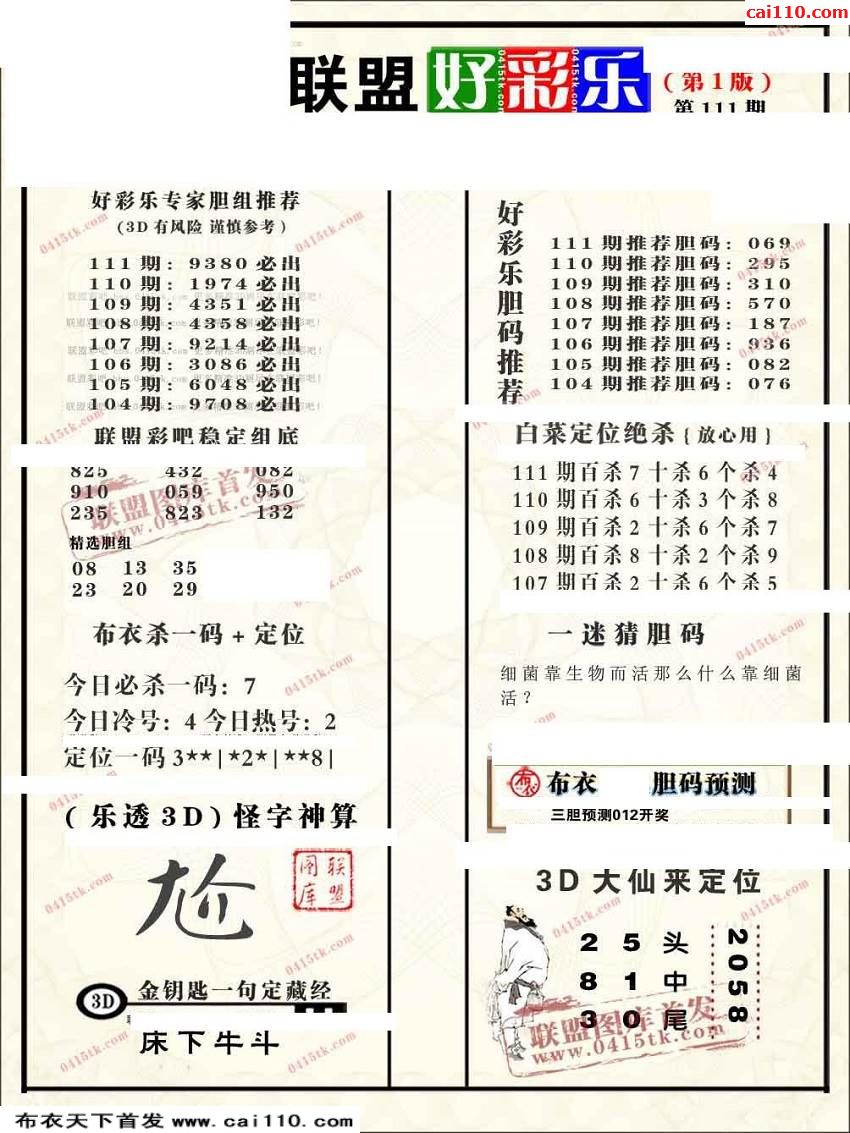 cai110.com
联盟好彩乐
(第1版)
第111期
好彩乐专家胆组推荐
(3D有风险 谨慎参考)
111期: 9380必出
110期: 1974必出
109期: 4351必出
108期: 4358必出
107期: 9214必出
106期: 3086必出
105期: 6048必出
104期: 9708必出
联盟彩吧稳定组底
825 432 082
910 059 950
235 823 132
精选胆组
08 13 35
23 20 29
布衣杀一码+定位
今日必杀一码: 7
今日冷号: 4 今日热号: 2
定位一码3**|*2*|**8|
(乐透3D)怪字神算
尬
联盟图库
3D
金钥匙一句定藏经
床下牛斗
好彩乐胆码推荐
111期推荐胆码: 069
110期推荐胆码: 295
109期推荐胆码: 310
108期推荐胆码: 570
107期推荐胆码: 187
106期推荐胆码: 936
105期推荐胆码: 082
104期推荐胆码: 076
白菜定位绝杀{放心用}
111期百杀7十杀6个杀4
110期百杀6十杀3个杀8
109期百杀2十杀6个杀7
108期百杀8十杀2个杀9
107期百杀2十杀6个杀5
一迷猜胆码
细菌靠生物而活那么什么靠细菌
活?
布衣 胆码预测
三胆预测012开奖
3D大仙来定位
2 5 头
8 1 中
3 0 尾
2058
联盟图库首发
www.0415tk.com
布衣天下首发 www.cai110.com